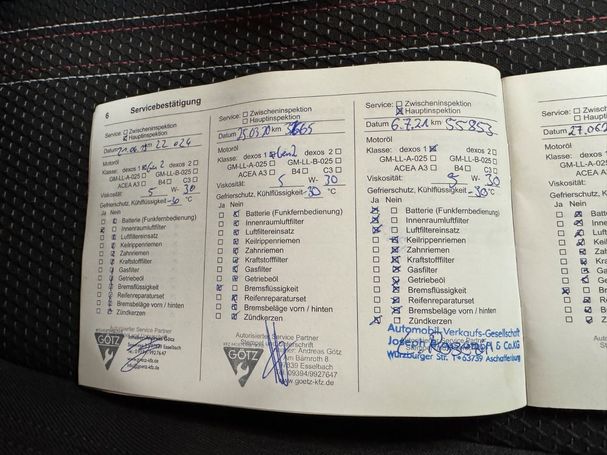 6 Servicebestätigung
Service: Zwischeninspektion
Hauptinspektion
Datum km 22 024
Motoröl
Klasse: dexos 1 Gen 2 dexos 2
GM-LL-A-025 GM-LL-B-025
ACEA A3 B4 C3
Viskosität: 5 W- 30
Gefrierschutz, Kühlflüssigkeit -30 °C
Ja Nein
Batterie (Funkfernbedienung)
Innenraumluftfilter
Luftfiltereinsatz
Keilrippenriemen
Zahnriemen
Kraftstofffilter
Gasfilter
Getriebeöl
Bremsflüssigkeit
Reifenreparaturset
Bremsbeläge vorn / hinten
Zündkerzen
Autorisierter Service Partner
GÖTZ
Esselbach
Service: Zwischeninspektion
Hauptinspektion
Datum 25.03.20 km
Motoröl
Klasse: dexos 1 Gen2 dexos 2
GM-LL-A-025 GM-LL-B-025
ACEA A3 B4 C3
Viskosität: 5 W- 30
Gefrierschutz, Kühlflüssigkeit -30 °C
Ja Nein
Batterie (Funkfernbedienung)
Innenraumluftfilter
Luftfiltereinsatz
Keilrippenriemen
Zahnriemen
Kraftstofffilter
Gasfilter
Getriebeöl
Bremsflüssigkeit
Reifenreparaturset
Bremsbeläge vorn / hinten
Zündkerzen
Autorisierter Service Partner
GÖTZ
Andreas Götz
Am Bärnroth 8
97839 Esselbach
09394/9927647
www.goetz-kfz.de
Service: Zwischeninspektion
Hauptinspektion
Datum 6.7.21 km 55853
Motoröl
Klasse: dexos 1 dexos 2
GM-LL-A-025 GM-LL-B-025
ACEA A3 B4 C3
Viskosität: 5 W- 30
Gefrierschutz, Kühlflüssigkeit -30 °C
Ja Nein
Batterie (Funkfernbedienung)
Innenraumluftfilter
Luftfiltereinsatz
Keilrippenriemen
Zahnriemen
Kraftstofffilter
Gasfilter
Getriebeöl
Bremsflüssigkeit
Reifenreparaturset
Bremsbeläge vorn / hinten
Zündkerzen
Automobil Verkaufs-Gesellschaft
Joseph & Co.KG
Würzburger Str. 63739 Aschaffenburg
Service:
Datum 27.06.2
Motoröl
Klasse:
GM-LL
ACE
Viskosität:
Gefrierschutz,
Ja Nein
Ba
In
Lu
Ke
Za
Kr
Ga
Ge
Br
Re
Br
Autoris